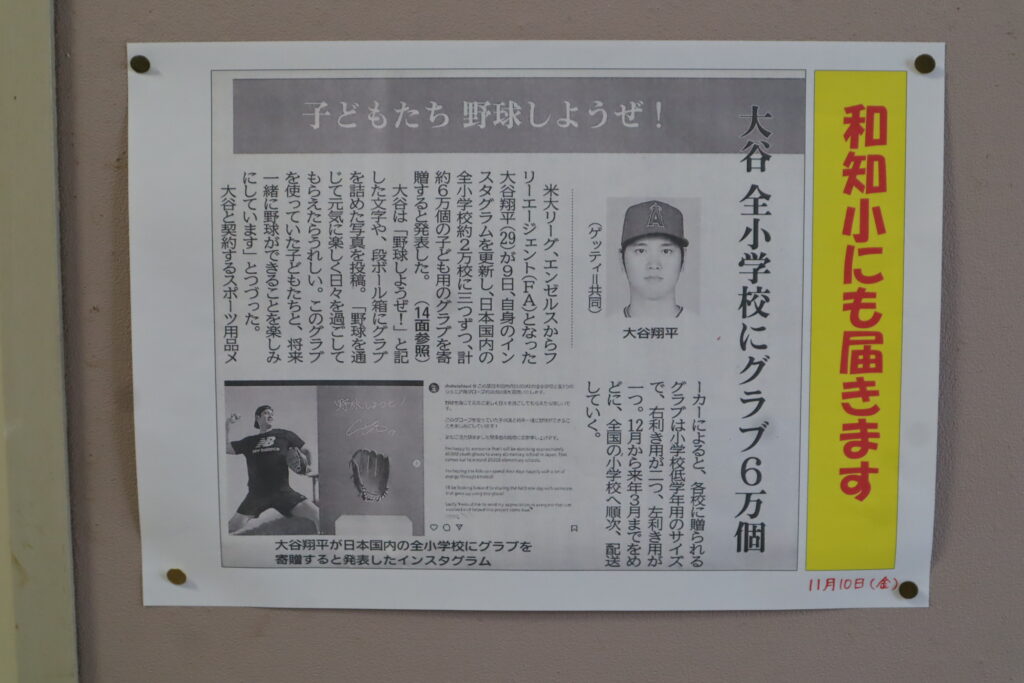 和知小にも届きます
子どもたち 野球しようぜ！
大谷 全小学校にグラブ6万個
大谷翔平
（ゲッティ＝共同）
米大リーグ、エンゼルスからフ
リーエージェント（FA）となった
大谷翔平（29）が9日、自身のイン
スタグラムを更新し、日本国内の
全小学校約2万校に三つずつ、計
約6万個の子ども用のグラブを寄
贈すると発表した。（14面参照）
大谷は「野球しようぜ！」と記
した文字や、段ボール箱にグラブ
を詰めた写真を投稿。「野球を通
じて元気に楽しく日々を過ごして
もらえたらうれしい。このグラブ
を使っていた子どもたちと、将来
一緒に野球ができることを楽しみ
にしています」とつづった。
大谷と契約するスポーツ用品メ
ーカーによると、各校に贈られる
グラブは小学校低学年用のサイズ
で、右利き用が二つ、左利き用が
一つ。12月から来年3月までをめ
どに、全国の小学校へ順次、配送
していく。
野球しようぜ！
new balance
大谷翔平が日本国内の全小学校にグラブを
寄贈すると発表したインスタグラム
11月10日（金）